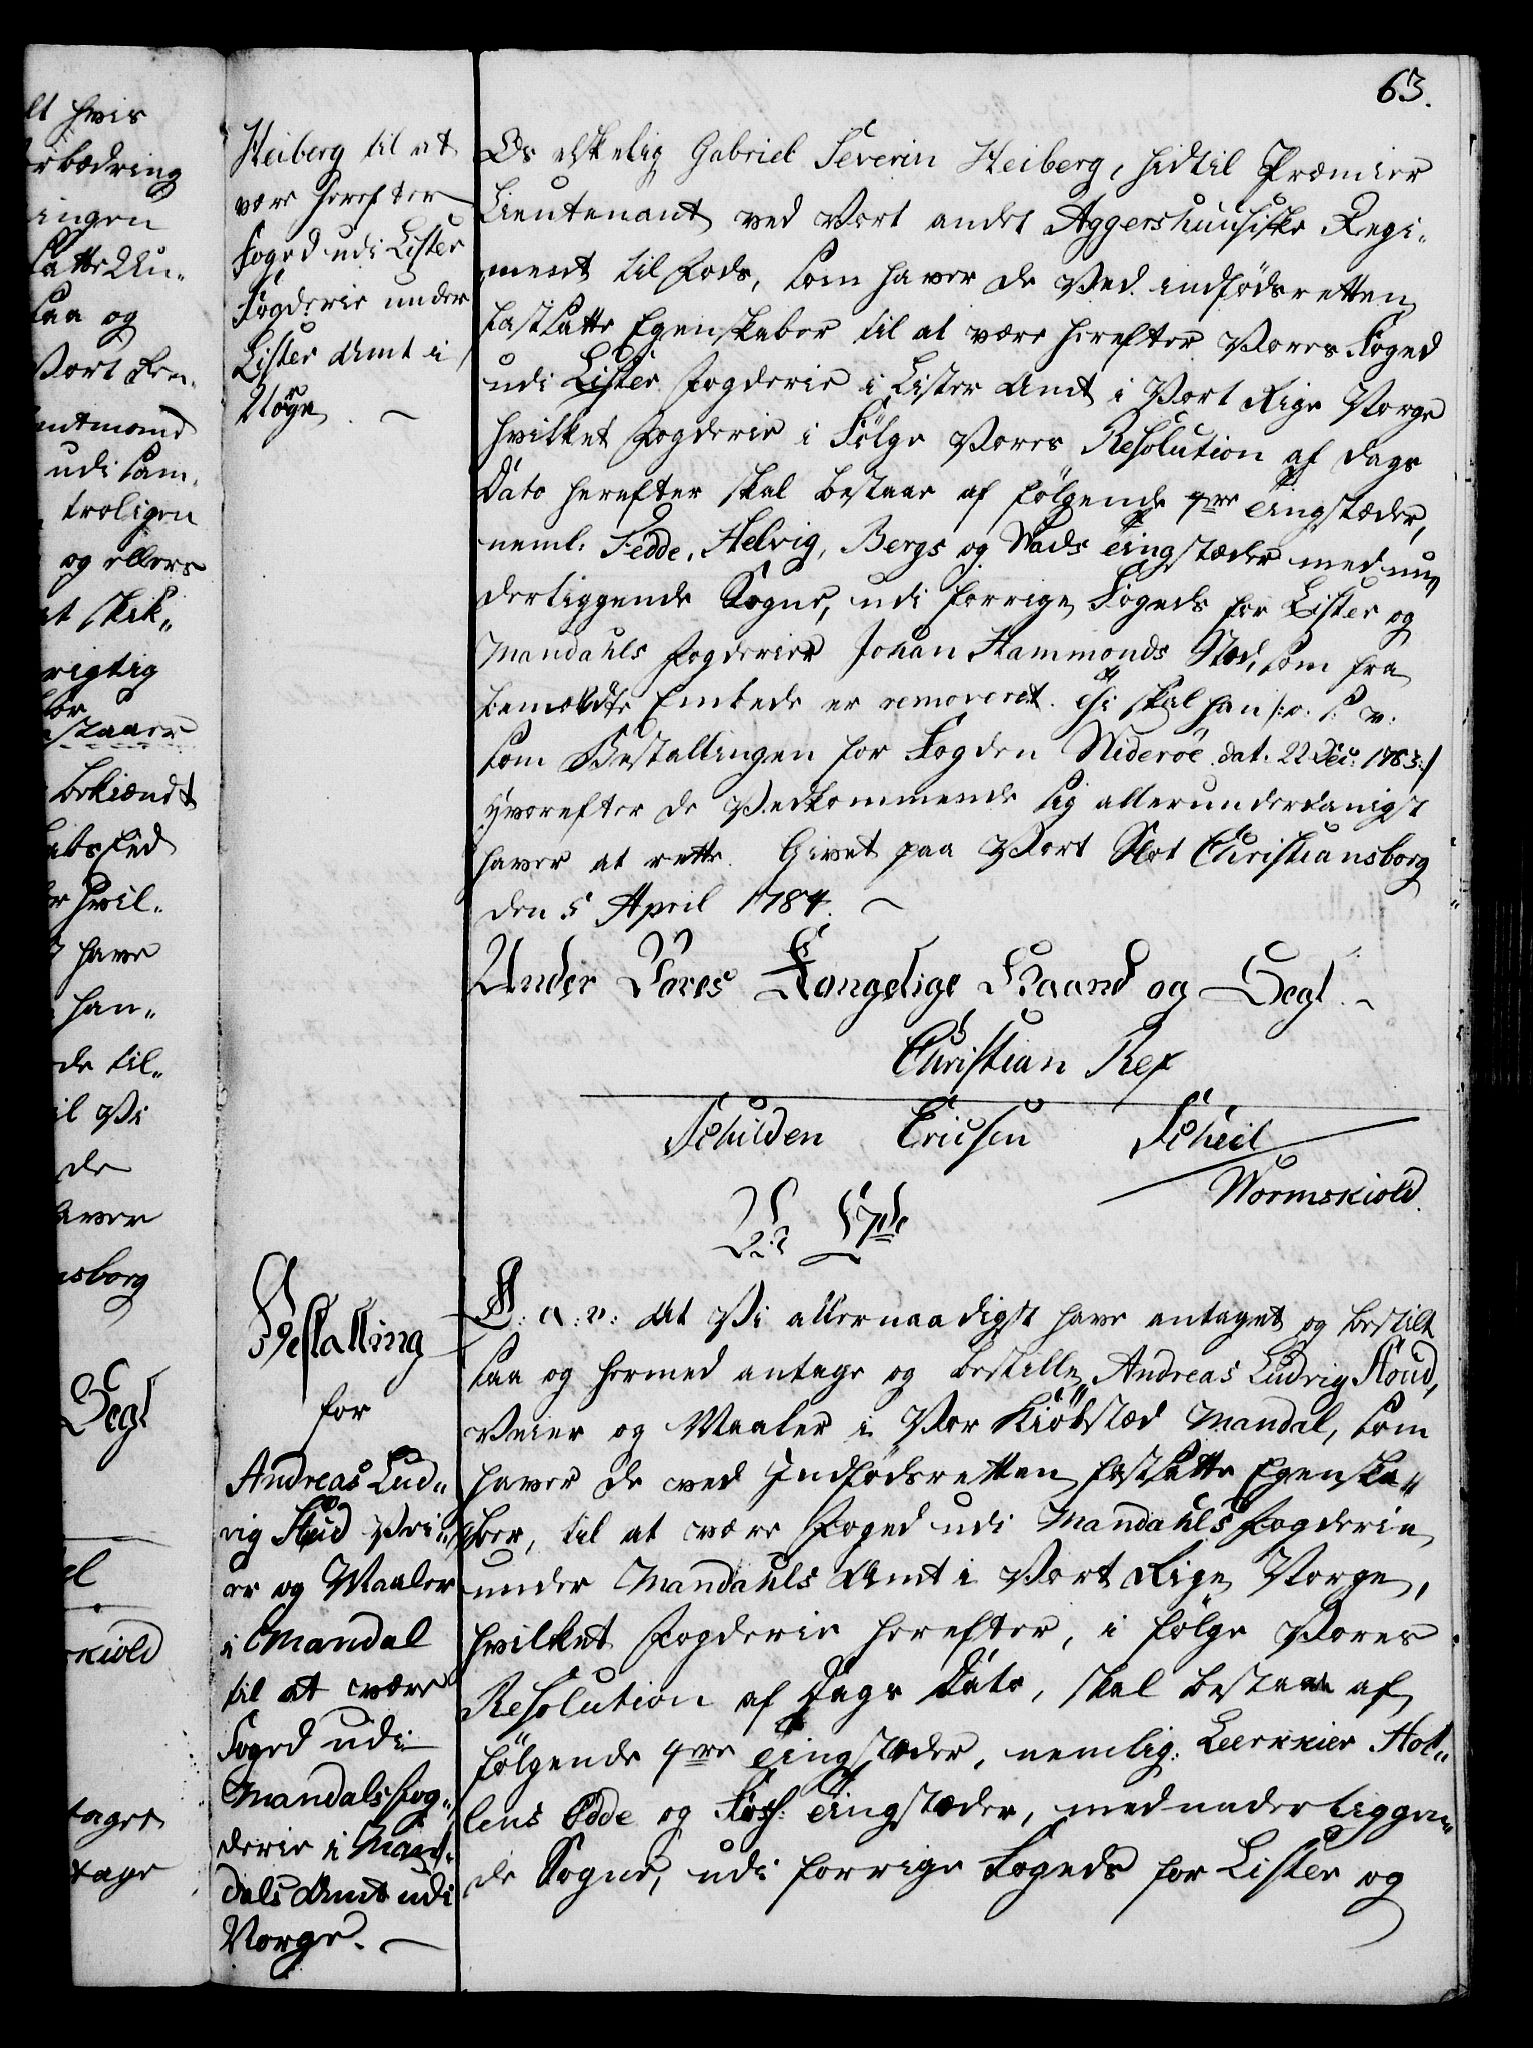 63.
Heiberg til at
være herefter
Foged udi Lister
Fogderie under
Lister Amt i
Norge
Os elskelig Gabriel Severin Heiberg, hidtil Premier
Lieutenant ved Vort andet Aggershuusiske Regi-
ment til Fods, som haver de ved indfödsretten
fastsatte Egenskaber til at være herefter Vores Foged
udi Lister Fogderie i Lister Amt i Vort Rige Norge
hvilket Fogderie i Fölge Vores Resolution af Dags
Dato herefter skal bestaae af fölgende 4re Tingstæder,
neml: Fedde, Helvig, Bergs og Nads Tingstæder med un„
derliggende Sogne, udi forrige Fogeds for Lister og
Mandahls Fogderier Johan Hammonds Sted, som fra
bemældte Embede er removeret. Thi skal han /: o: s: v:
som Bestallingen for Fogden Wideröe dat. 22 Dec: 1783:/
Hvorefter de Vedkommende sig allerunderdanigst
haver at rette. Givet paa Vort Slot Christiansborg
den 5 April 1784.
Under Vores Kongelige Haand og Segl.
Christian Rex
Schilden Ericsen Scheil
Wormskiold.
Bestalling
for
Andreas Lud„
vig Stud Vei„
er og Maaler
i Mandal
til at være
Foged udi
Mandals Fog„
derie i Man„
dals Amt udi
Norge.
G: A: V: At Vi allernaadigst have antaget og bestilt
saa og hermed antage og bestille Andreas Ludvig Stoud,
Veier og Maaler i Vor Kiöbstæd Mandal, som
haver de ved Indfödsretten fastsatte Egenska„
ber, til at være Foged udi Mandahls Fogderie
under Mandahls Amt i Vort Rige Norge,
hvilket Fogderie herefter, i fölge Vores
Resolution af Dags Dato, skal bestaae af
fölgende 4re Tingstæder, nemlig: Leerkier Hol„
lens Odde og Fosf: Tingstæder, med underliggen„
de Sogne, udi forrige Fogeds for Lister og